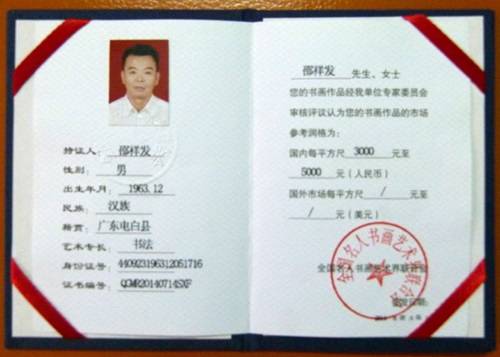 持证人: 邵样发
性别: 男
出生年月: 1963.12
民族: 汉族
籍贯: 广东电白县
艺术专长: 书法
身份证号: 440923196312051716
证书编号: QGMR20140714SXF
邵样发 先生、女士
您的书画作品经我单位专家委员会
审核评议认为您的书画作品的市场
参考润格为:
国内每平方尺 3000 元至
5000 元(人民币)
国外市场每平方尺 / 元至
/ 元(美元)
全国名人书画艺术界联合会
全国名人书画艺术界联合会